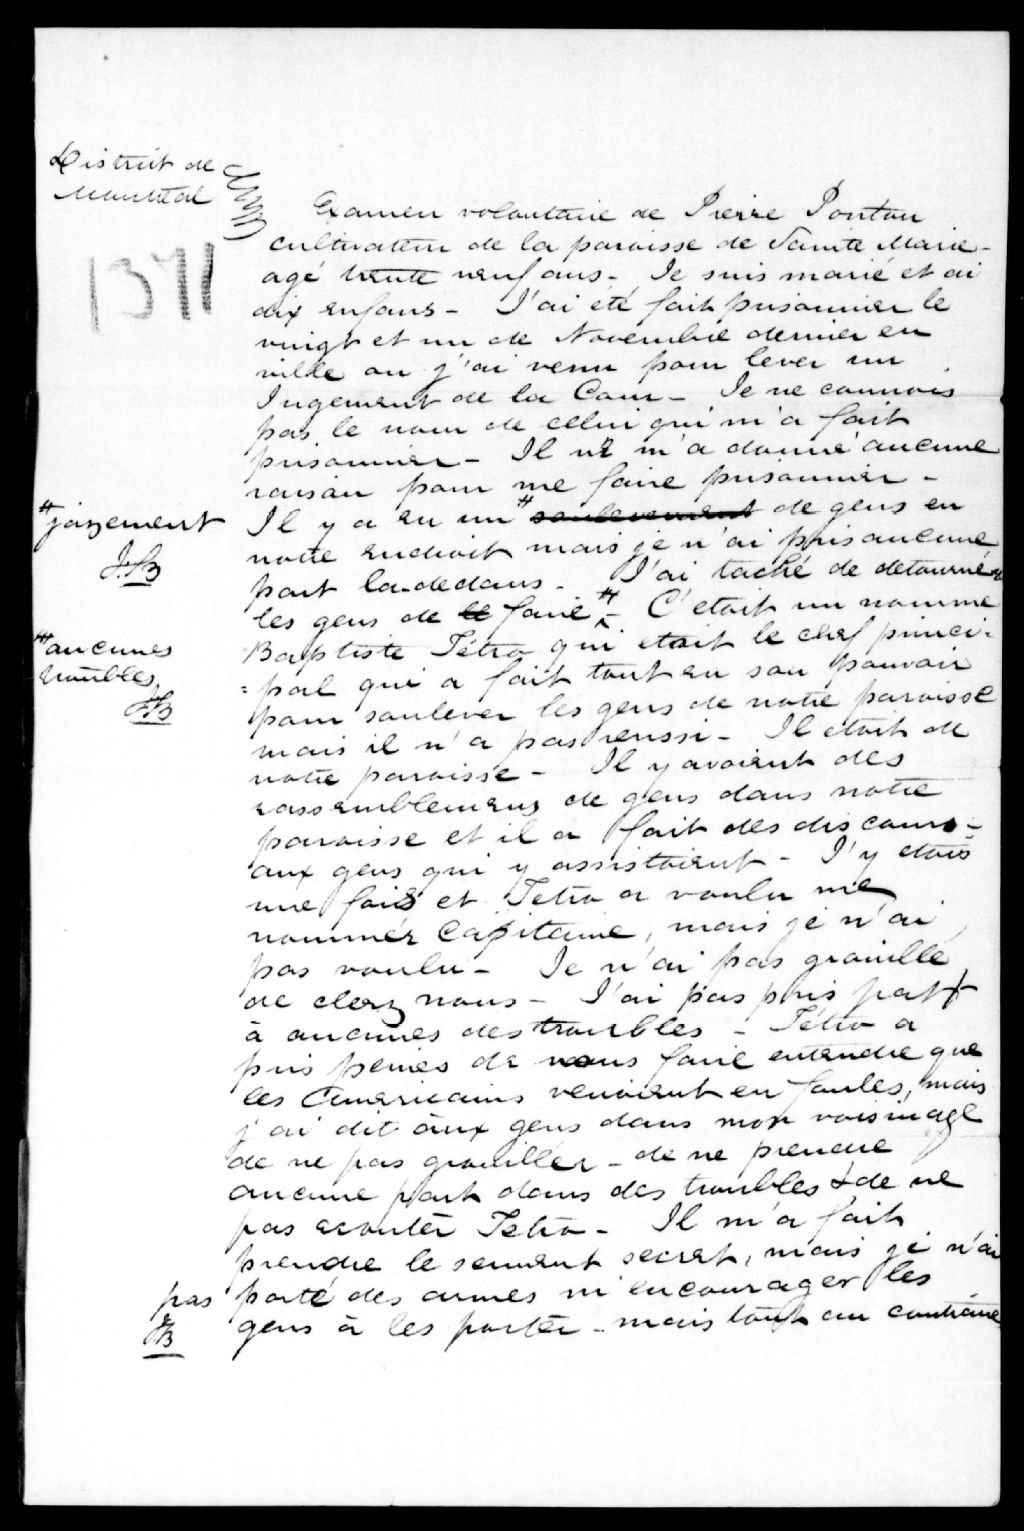 District de
Montréal
1371
Examen volontaire de Pierre Ponton
cultivateur de la paroisse de Sainte Marie -
agé trente neuf ans - Je suis marié et ai
dix enfans - J'ai été fait prisonnier le
vingt et un de Novembre dernier en
ville ou j'ai venu pour lever un
Jugement de la Cour - Je ne connois
pas le nom de celui qui m'a fait
prisonnier - Il ne m'a donné aucune
raison pour me faire prisonnier -
# jazement
J.B
Il y a eu un # soulevement de gens en
notre endroit mais je n'ai pris aucune
part la-dedans - J'ai taché de detourner
les gens de le faire # - C'etoit un nommé
## aucunes
troubles
J.B
Baptiste Tétro qui etoit le chef princi-
=pal qui a fait tout en son pouvoir
pour soulever les gens de notre paroisse
mais il n'a pas reussi - Il etoit de
notre paroisse - Il y avoient des
rassemblemens de gens dans notre
paroisse et il a fait des discours -
aux gens qui y assistoient - J'y etois
une fois et Tetro a voulu me
nommer Capitaine, mais je n'ai
pas voulu - Je n'ai pas grouillé
de chez nous - J'ai pas pris part
à aucunes des troubles - Tétro a
pris peines de nous faire entendre que
les Americains venoient en foules, mais
j'ai dit aux gens dans mon voisinage
de ne pas grouiller - de ne prendre
aucune part dans des troubles & de ne
pas ecouter Tetro - Il m'a fait
prendre le serment secret, mais je n'ai
pas porté des armes ni encourager les
J.B
gens à les porter - mais tout au contraire